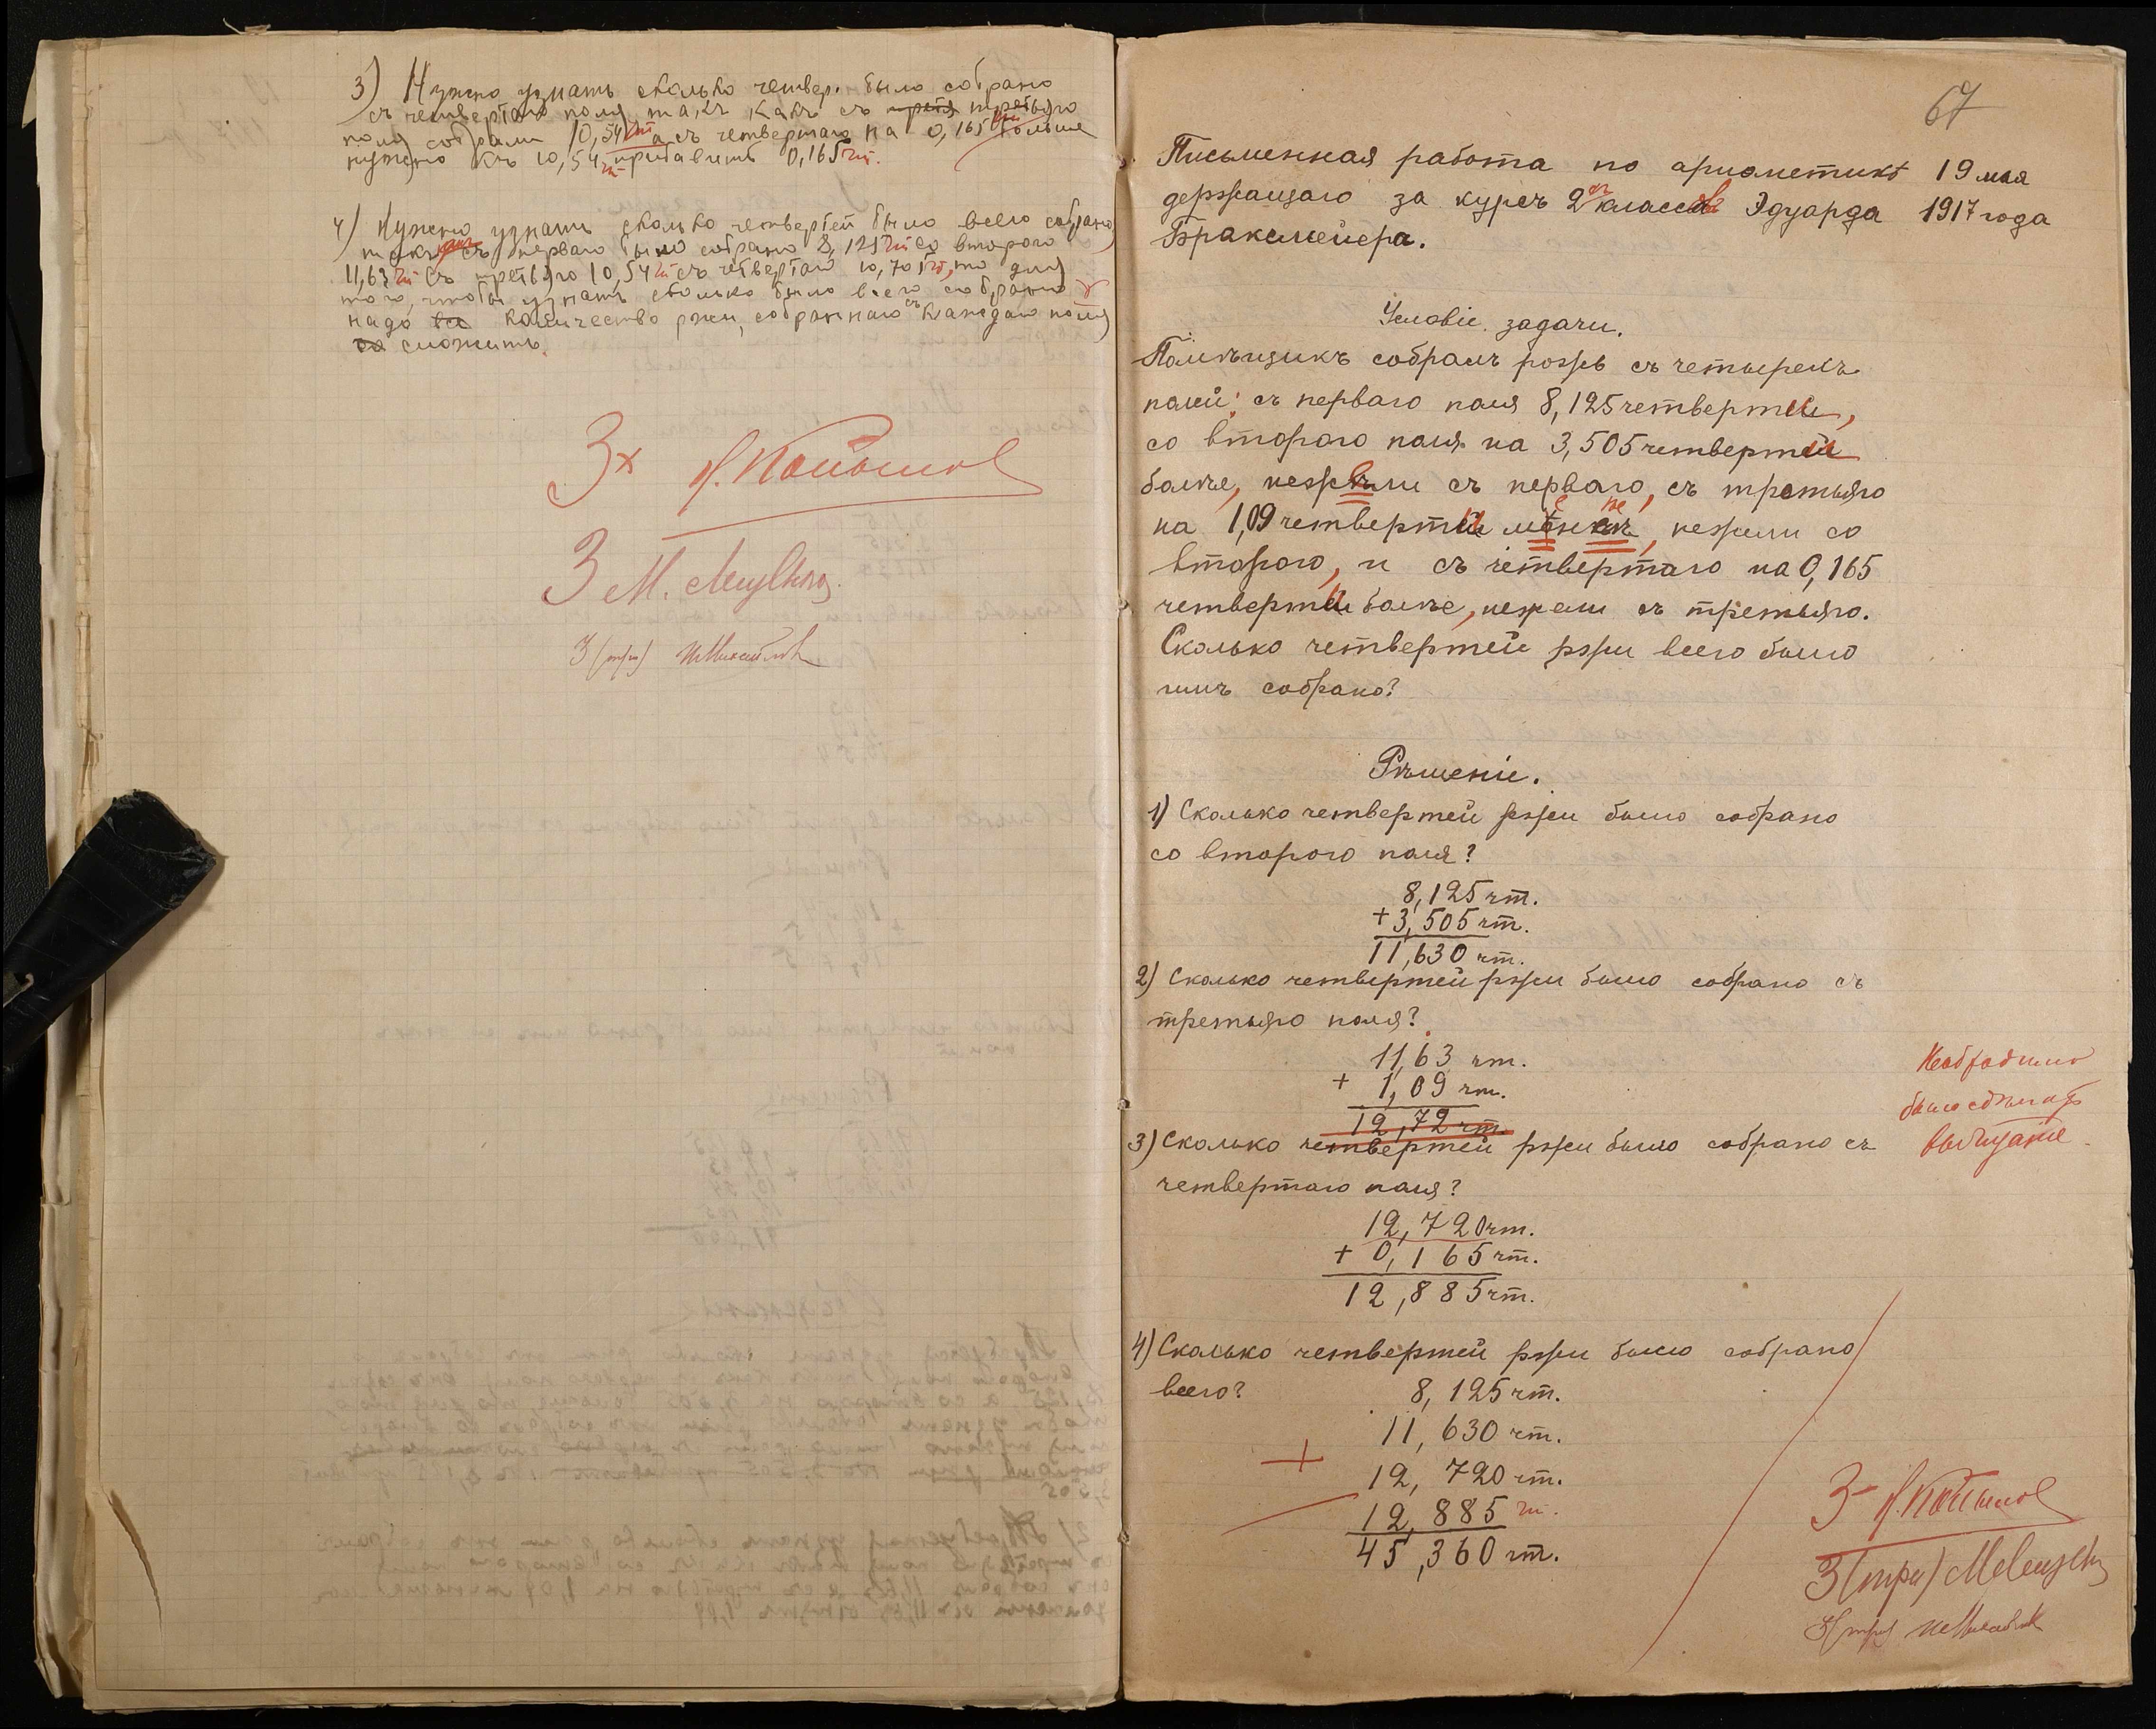 3) Нужно узнать сколько четвер. было собрано
съ четвертаго поля, такъ какъ съ третья третьяго
поля собрали 10,54 чт а съ четвертаго на 0,165 чт больше
нужно къ 10,54 чт прибавить 0,165 чт.
4) Нужно узнать сколько четвертей было всего собрано,
такъ какъ съ перваго было собрано 8,125 чт со второго
11,63 чт съ третьяго 10,54 чт съ четвертаго 10,705 чт, то для
того, чтобы узнать сколько было всего собрано
надо все количество ржи, собраннаго съ каждаго поля
со сложить.
3+
3 М.
3 (три)
67
Письменная работа по ариѳметикѣ 19 мая
держащаго за курсъ 2ᵡᵇ классовъ Эдуарда 1917 года
Бракемейера.
Условіе задачи.
Помѣщикъ собралъ рожь съ четырехъ
полей: съ перваго поля 8,125 четвертей,
со второго поля на 3,505 четвертей
болѣе, нежели съ перваго, съ третьяго
на 1,09 четвертей менѣе, нежели со
второго, и съ четвертаго на 0,165
четвертей болѣе, нежели съ третьяго.
Сколько четвертей ржи всего было
имъ собрано?
Рѣшеніе.
1) Сколько четвертей ржи было собрано
со второго поля?
8,125 чт.
+ 3,505 чт.
11,630 чт.
2) Сколько четвертей ржи было собрано съ
третьяго поля?
11,63 чт.
+ 1,09 чт.
12,72 чт.
Необходимо
было сдѣлать
вычитаніе
3) Сколько четвертей ржи было собрано съ
четвертаго поля?
12,720 чт.
+ 0,165 чт.
12,885 чт.
4) Сколько четвертей ржи было собрано
всего?
8,125 чт.
11,630 чт.
+ 12,720 чт.
12,885 чт.
45,360 чт.
3-
3 (три)
3 (три)